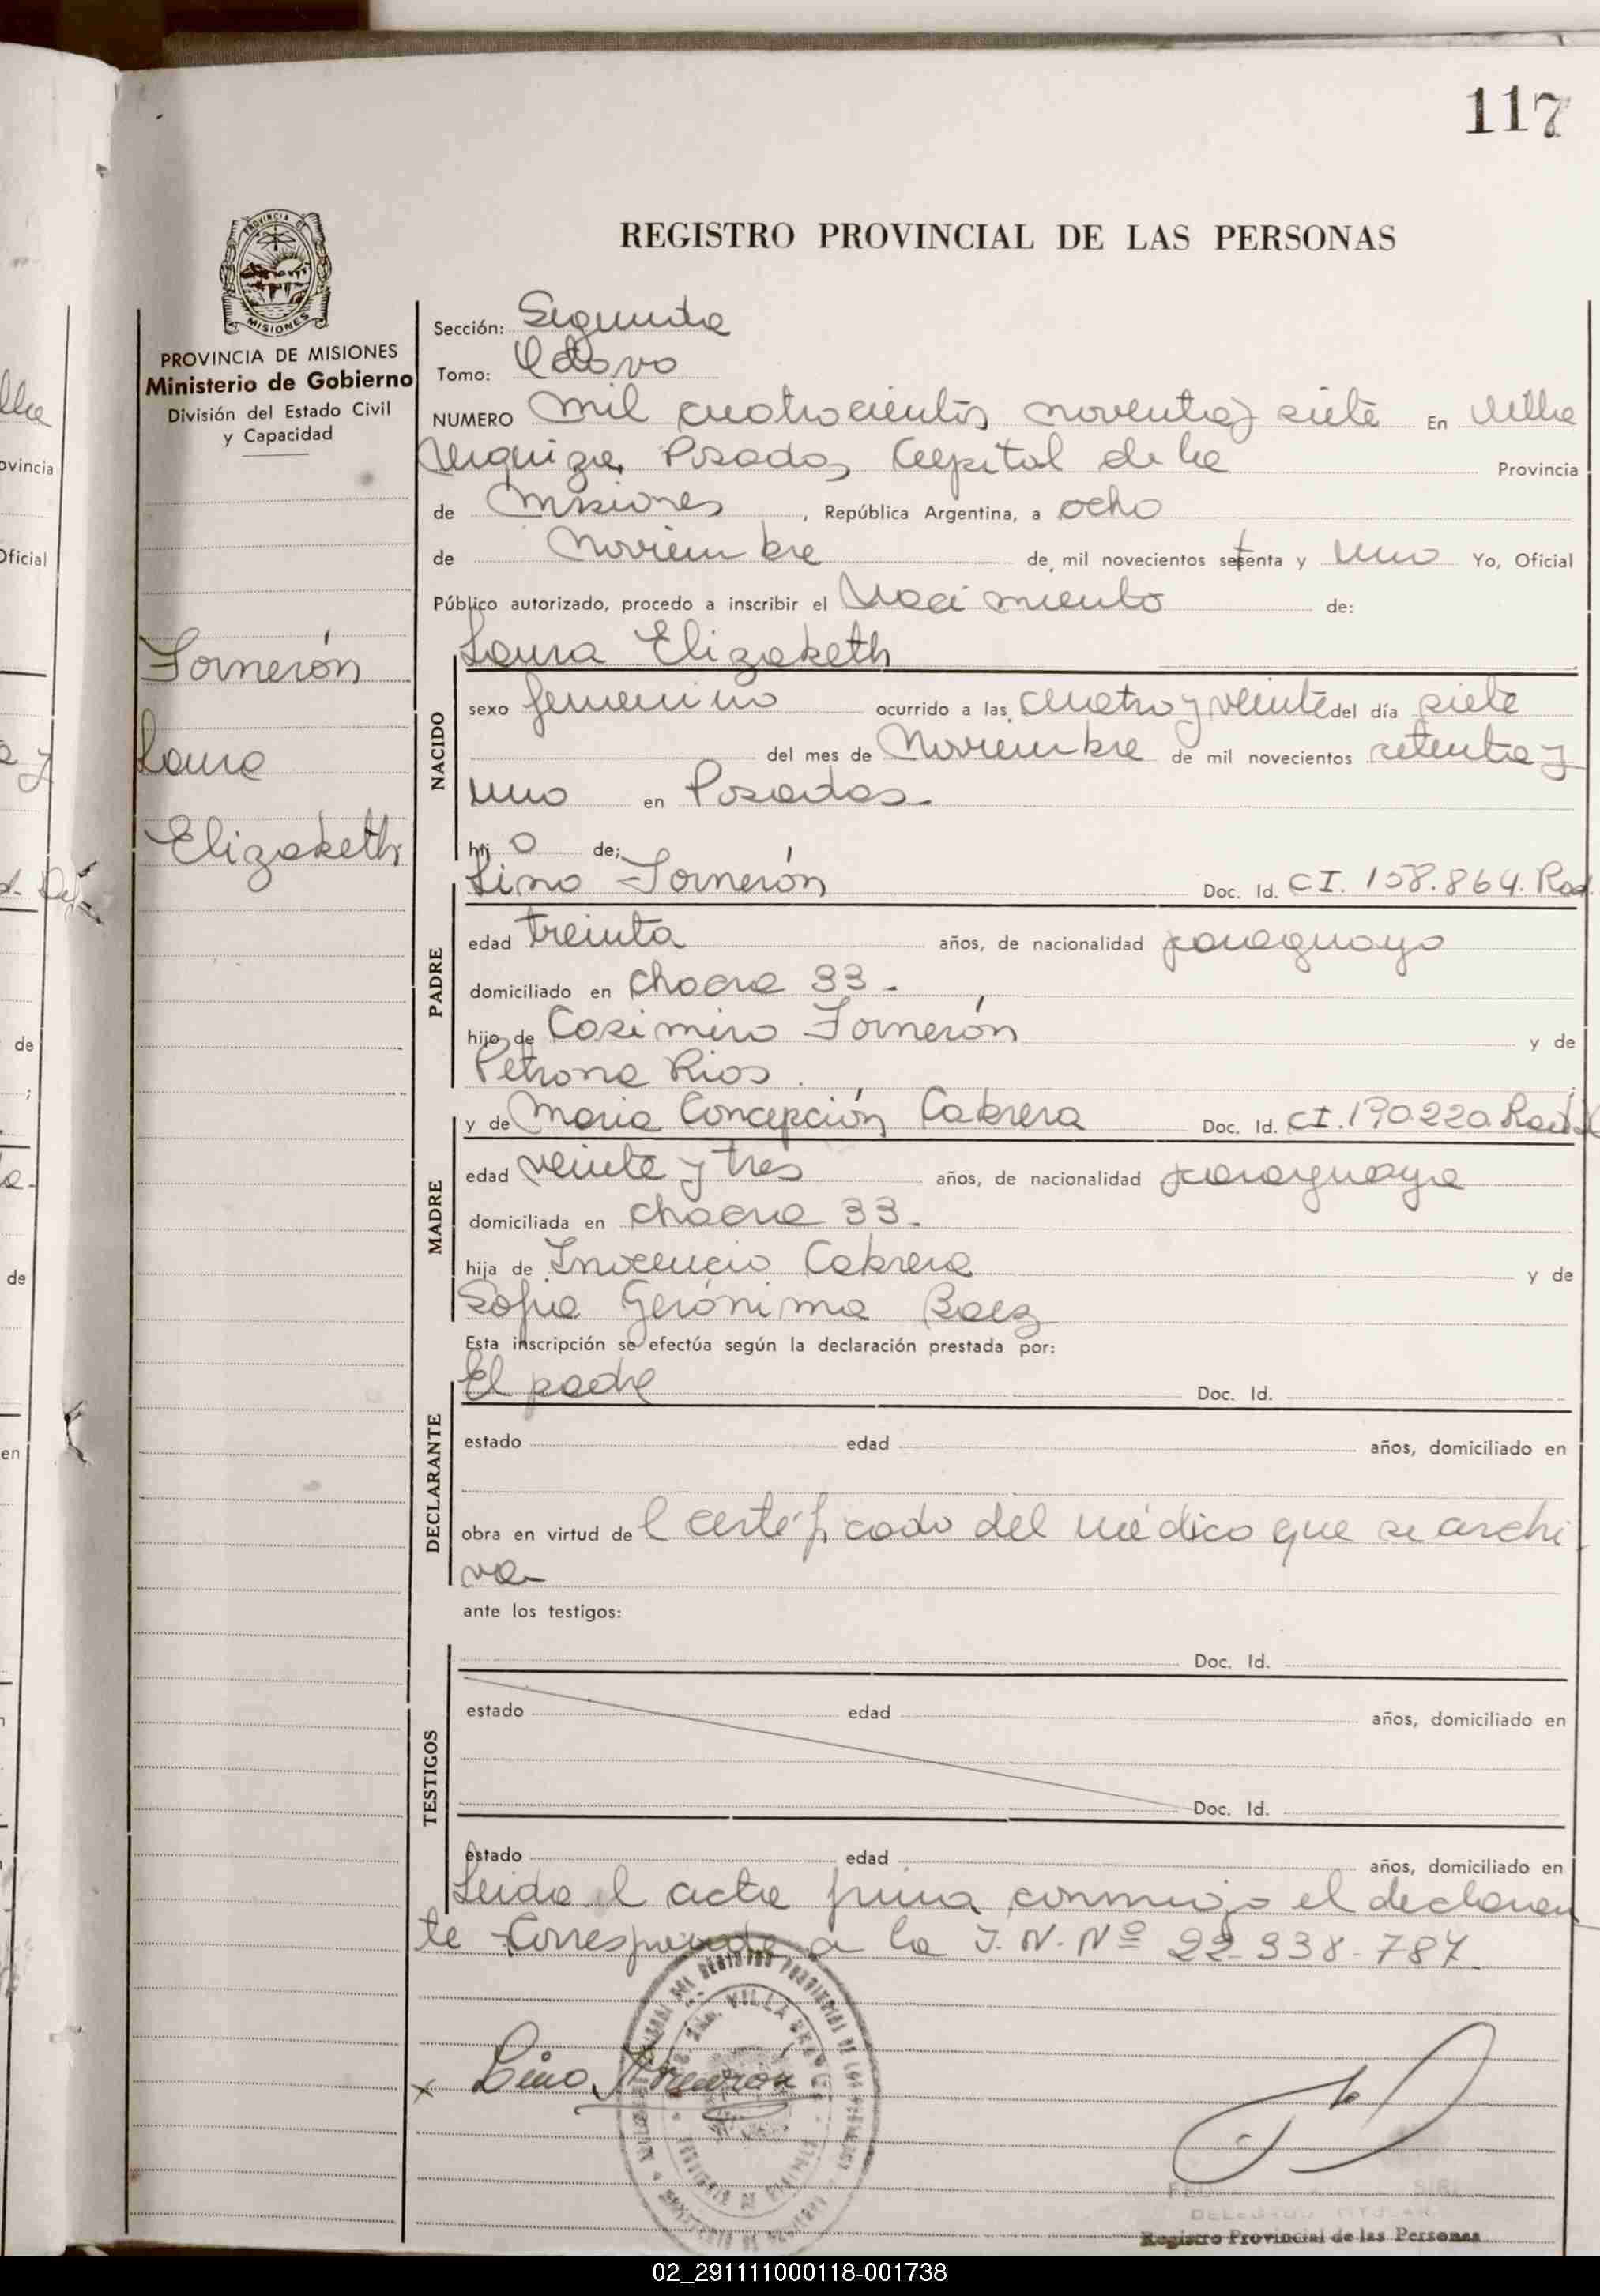 117
REGISTRO PROVINCIAL DE LAS PERSONAS
PROVINCIA DE MISIONES
Ministerio de Gobierno
División del Estado Civil
y Capacidad
Fornerón
Laura
Elizabeth
Sección: Segunda
Tomo: Octavo
NUMERO mil cuatrocientos noventa y siete En Villa
Urquiza, Posadas, Capital de la Provincia
de Misiones, República Argentina, a ocho
de Noviembre de mil novecientos setenta y uno Yo, Oficial
Público autorizado, procedo a inscribir el Nacimiento de:
Laura Elizabeth
NACIDO
sexo femenino ocurrido a las cuatro y veinte del día siete
del mes de Noviembre de mil novecientos setenta y
uno en Posadas
hij o de;
Lino Fornerón Doc. Id. CI. 158.864. Rad.
PADRE
edad treinta años, de nacionalidad paraguayo
domiciliado en chacra 33.
hijo de Casimiro Fornerón y de
Petrona Rios
y de Maria Concepción Cabrera Doc. Id. CI. 190.220. Rad.
MADRE
edad veinte y tres años, de nacionalidad paraguaya
domiciliada en chacra 33.
hija de Inocencio Cabrera y de
Sofia Gerónima Baez
Esta inscripción se efectúa según la declaración prestada por:
El padre Doc. Id.
DECLARANTE
estado edad años, domiciliado en
obra en virtud de l certificado del médico que se archi
va
ante los testigos:
Doc. Id.
TESTIGOS
estado edad años, domiciliado en
Doc. Id.
estado edad años, domiciliado en
Leida el acta firma conmigo el declaran
te Corresponde a la I.N. Nº 22.338.787
x Lino Fornerón
Registro Provincial de las Personas
02_291111000118-001738